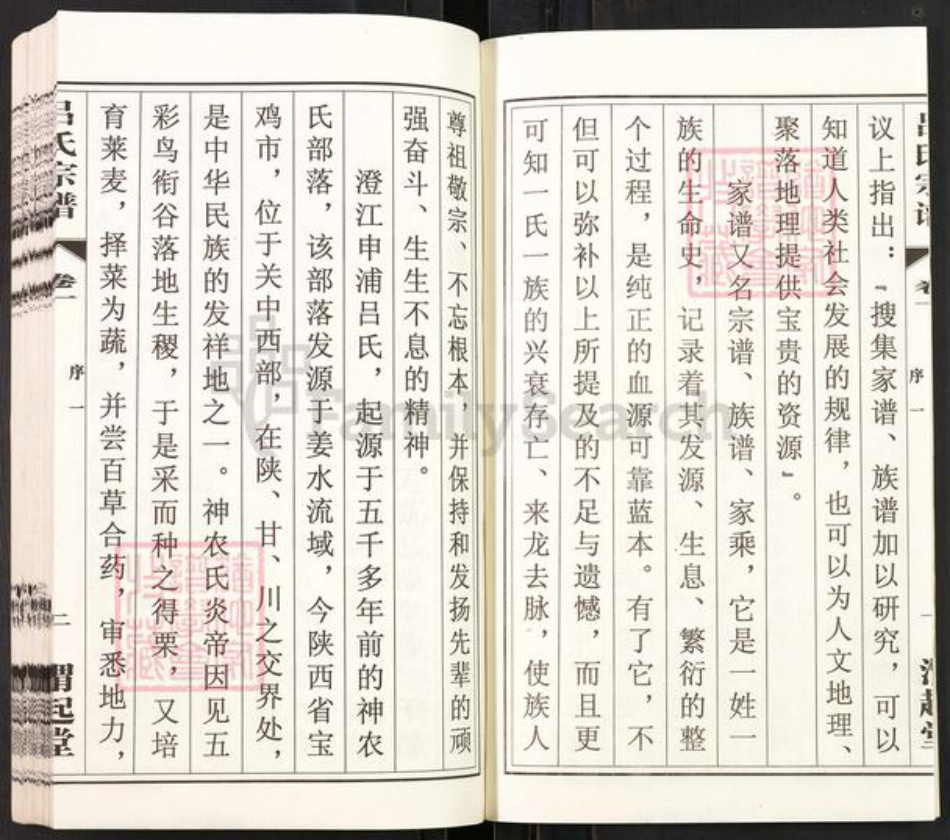 议上指出：『搜集家谱、族谱加以研究，可以
知道人类社会发展的规律，也可以为人文地理、
聚落地理提供宝贵的资源』。
家谱又名宗谱、族谱、家乘，它是一姓一
族的生命史，记录着其发源、生息、繁衍的整
个过程，是纯正的血源可靠蓝本。有了它，不
但可以弥补以上所提及的不足与遗憾，而且更
可知一氏一族的兴衰存亡、来龙去脉，使族人
序一
尊祖敬宗、不忘根本，并保持和发扬先辈的顽
强奋斗、生生不息的精神。
澄江申浦吕氏，起源于五千多年前的神农
氏部落，该部落发源于姜水流域，今陕西省宝
鸡市，位于关中西部，在陕、甘、川之交界处，
是中华民族的发祥地之一。神农氏炎帝因见五
彩鸟衔谷落地生稷，于是采而种之得栗，又培
育莱麦，择菜为蔬，并尝百草合药，审悉地力，
吕氏宗谱 卷一 序一 二 渭起堂
FamilySearch